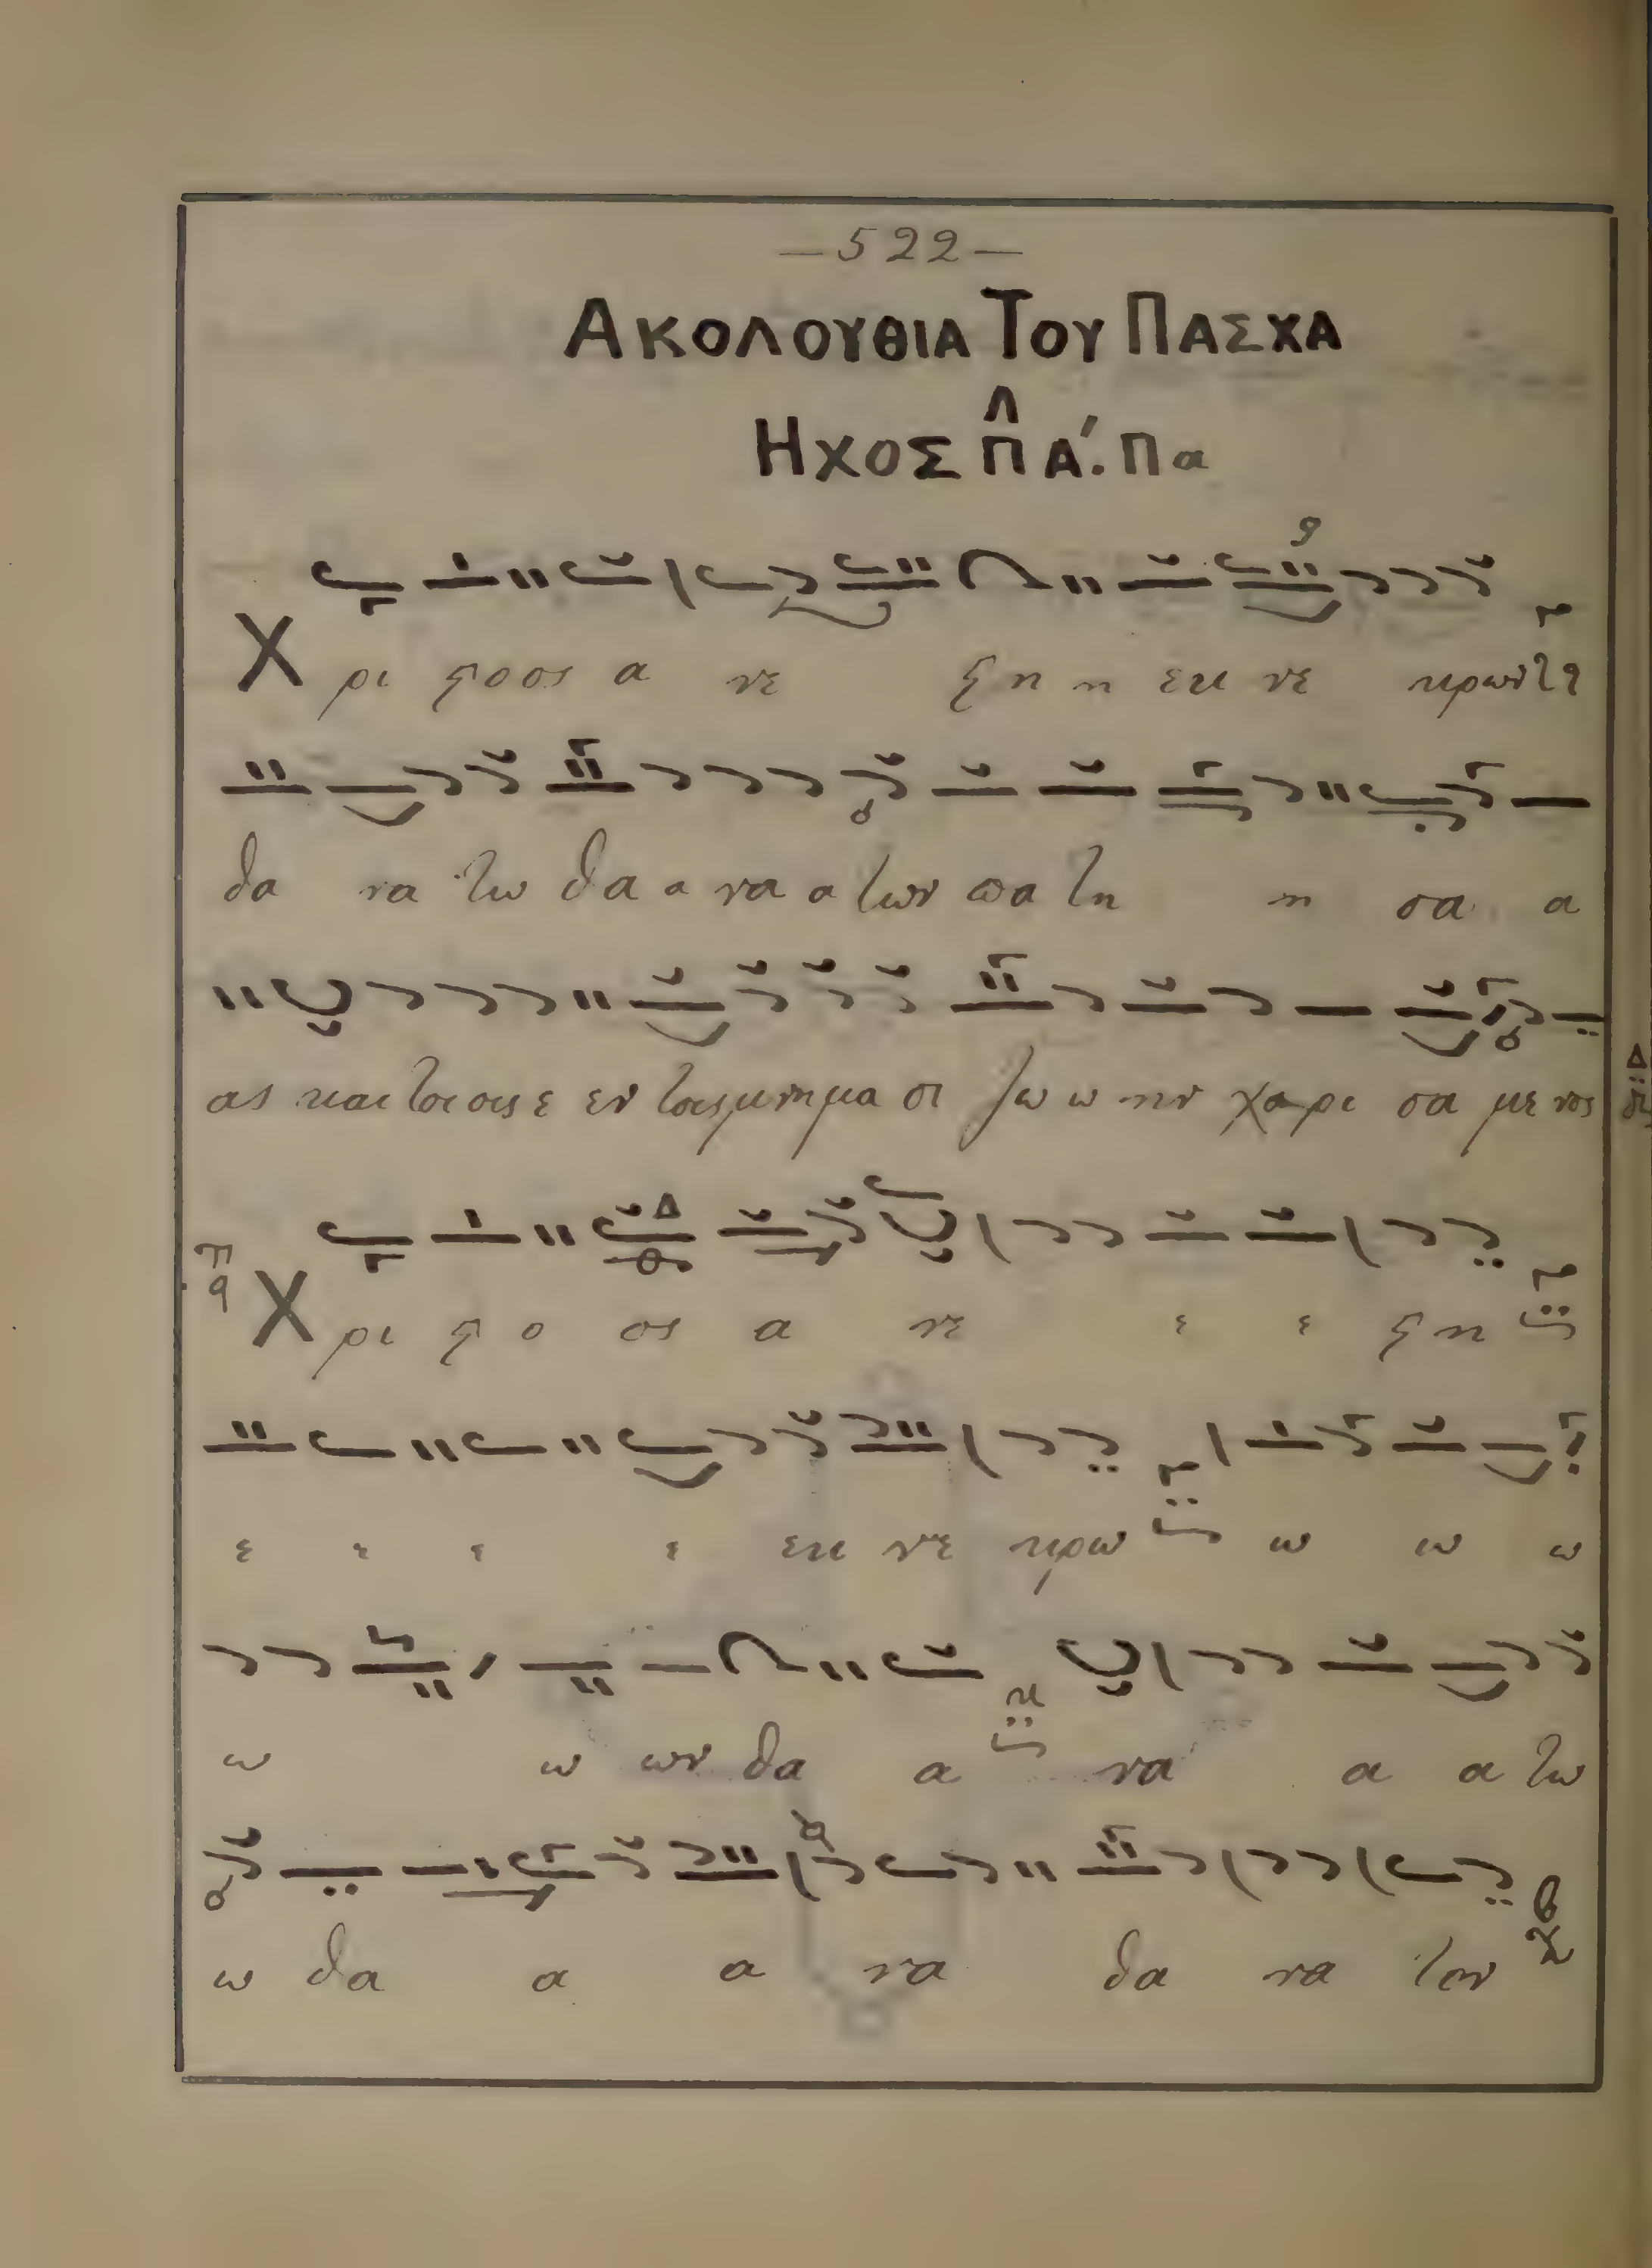 —522—
ΑΚΟΛΟΥΘΙΑ ΤΟΥ ΠΑΣΧΑ
ΗΧΟΣ Π̂Α΄. Πα
Χ ρι ϛο ος α νε ϛη η εκ νε κρων
θα να τω θα α να α των πα τη η σα α
ας και τοι οις ε εν τοις μνημα σι ζω ω ην χα ρι σα με νος
Χ ρι ϛ ο ος α νε ε ε ϛη
ε ε ε ε εκ νε κρω ω ω ω
ω ω ων θα α να α α τω
ω θα α α να θα να τον